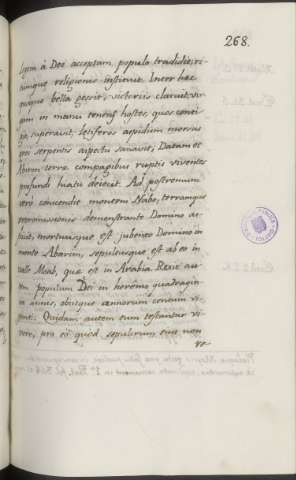 268.
legem à Deo acceptam, populo tradidit, ri-
tumque religionis instituit. Inter hæc
quoque bella gessit, victoriis claruit, vir-
gam in manu tenens hostes, quos
superavit, letiferos aspidum morsus
æneo serpentis aspectu sanavit, Datam et
Abiron terræ compagibus ruptis viventes
profundi hiatu dejecit. Ad postremum
vero conscendit montem Nabo, terramque
promissionis demonstrante Domino
, mortuusque est jubente Domino in
monte Abarim, sepultusque est ab eo in
valle Moab, quæ est in Arabia. Rexit au-
tem populum Dei in heremo quadragin-
ta annis, obiitque annorum centum vi-
ginti. Quidam autem eum testantur vi-
vere, pro eo quod sepulcrum ejus non